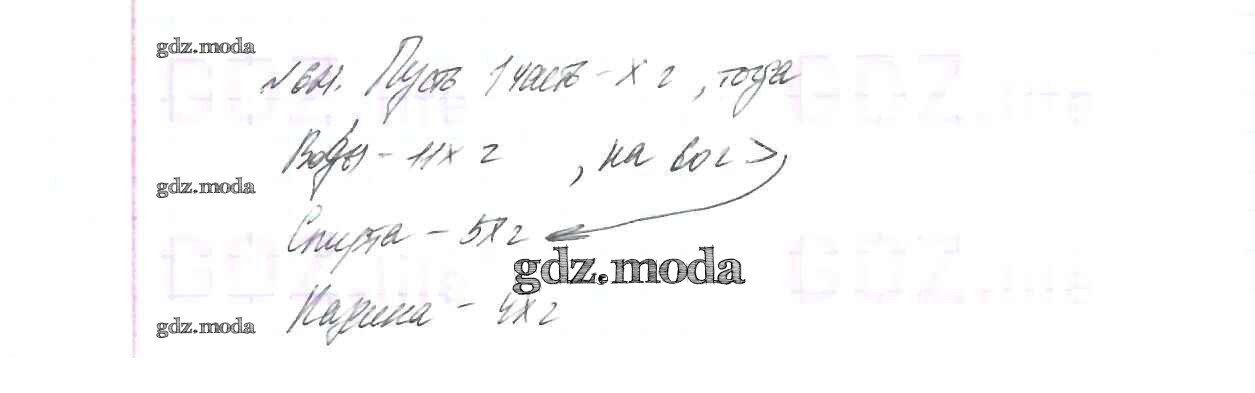 gdz.moda
№ 611. Пусть 1 часть - x г, тогда
Воды - 11x г, на 60 г >,
gdz.moda
Спирта - 5x г
gdz.moda
- 4x г
gdz.moda